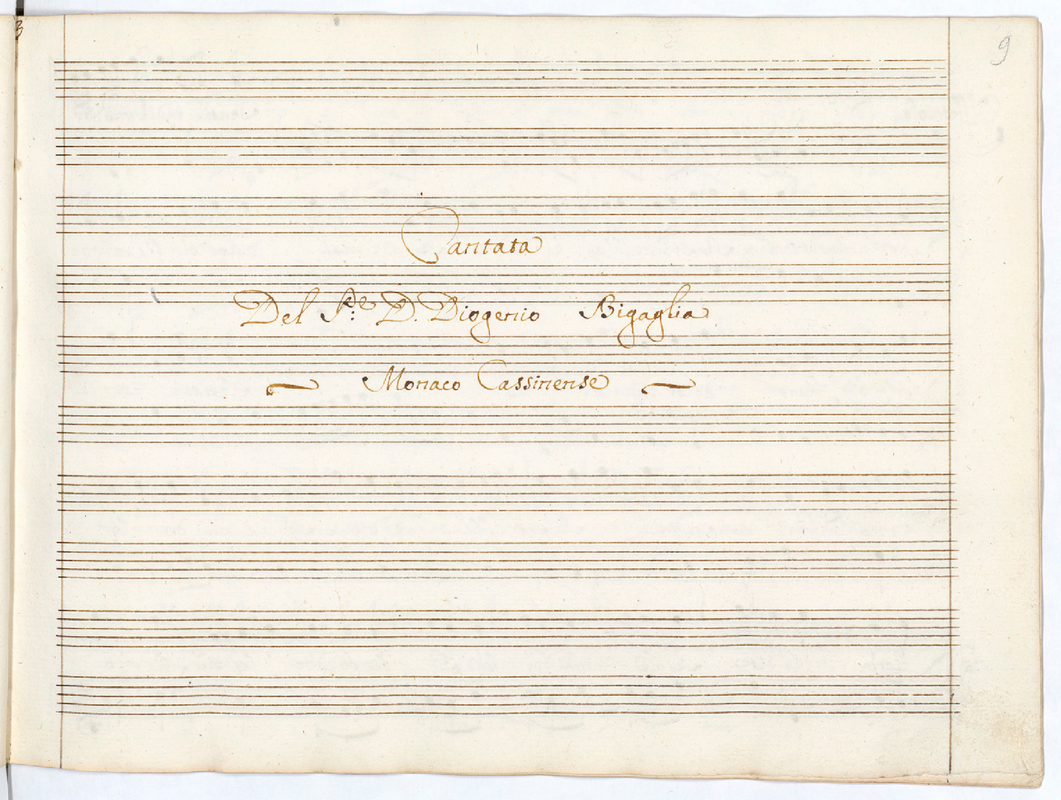 9
Cantata
Del P.e D. Diogenio Bigaglia
Monaco Cassinense